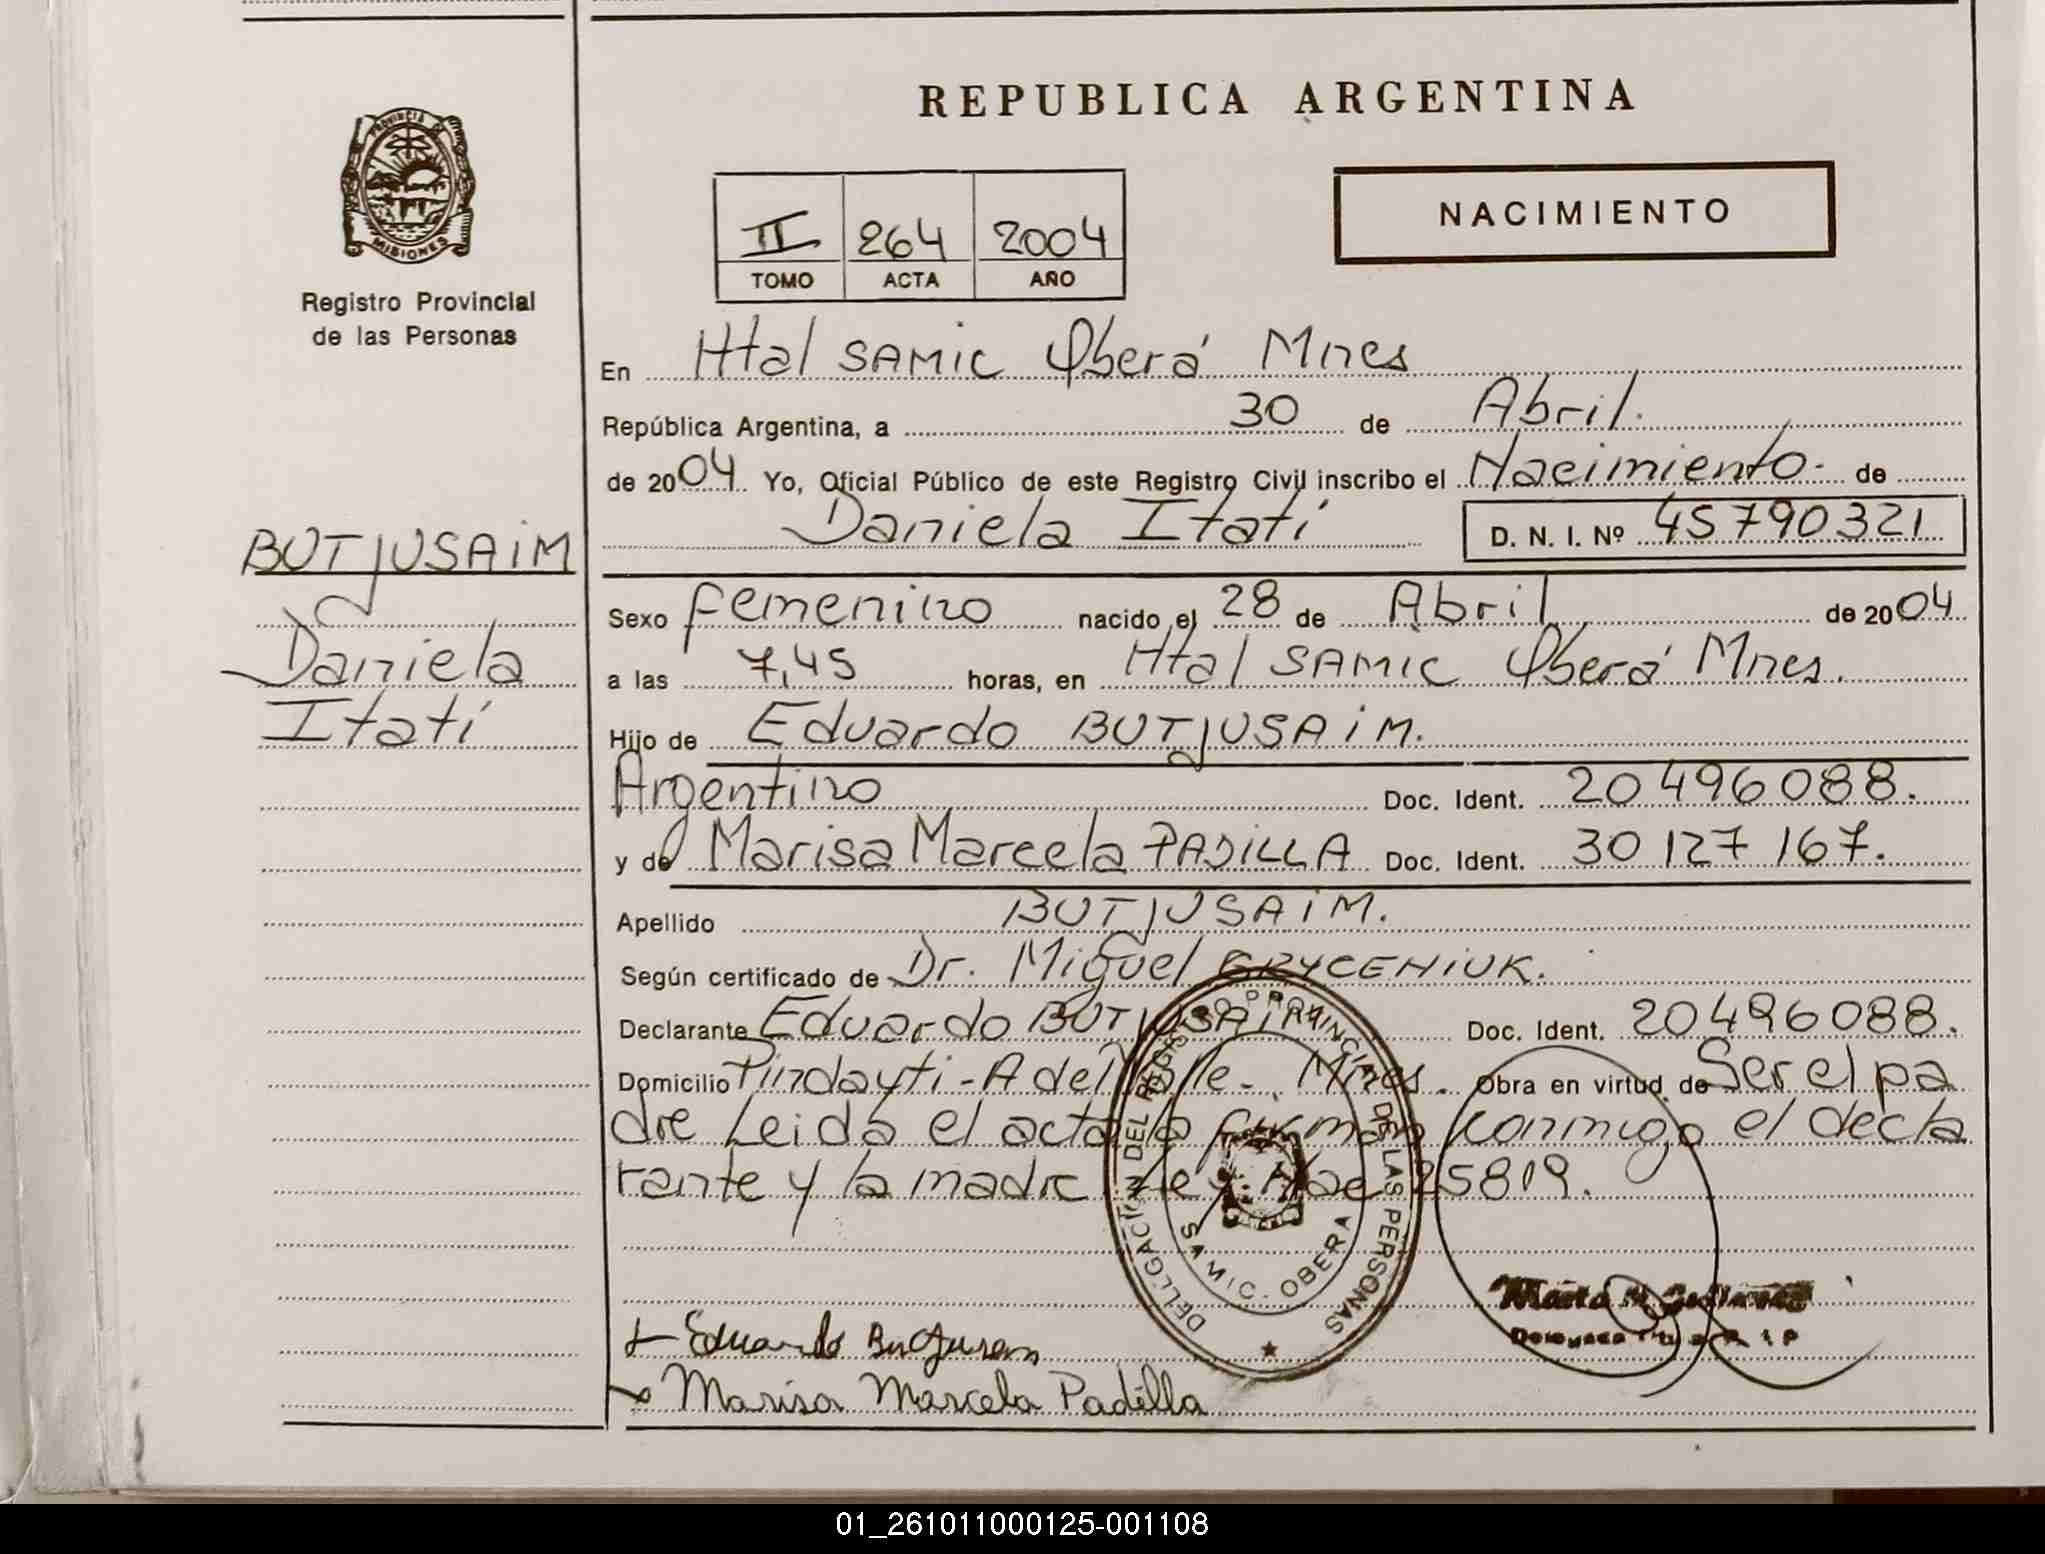 REPUBLICA ARGENTINA
PROVINCIA DE
MISIONES
Registro Provincial
de las Personas
II 264 2004
TOMO ACTA AÑO
NACIMIENTO
En Htal SAMIC Oberá Mnes
República Argentina, a 30 de Abril.
de 2004 Yo, Oficial Público de este Registro Civil inscribo el Nacimiento. de
Daniela Itatí D. N. I. Nº 45790321
BUTJUSAiM
Daniela
Itatí
Sexo femenino nacido el 28 de Abril de 2004
a las 7,45 horas, en Htal SAMIC Oberá Mnes.
Hijo de Eduardo BUTJUSAiM.
Argentino Doc. Ident. 20496088.
y de Marisa Marcela PADILLA Doc. Ident. 30127167.
Apellido BUTJUSAiM.
Según certificado de Dr. Miguel GRYCENiUK.
Declarante Eduardo BUTJUSAiM Doc. Ident. 20496088.
Domicilio Pindayti - A del Valle - Mnes. Obra en virtud de Ser el pa
dre Leida el acta la firman conmigo el decla
rante y la madre Ley Nac 25819.
DELEGACIÓN DEL REGISTRO PROVINCIAL DE LAS PERSONAS
SAMIC - OBERA
Marta
Eduardo Butjusem
Marisa Marcela Padilla
01_261011000125-001108